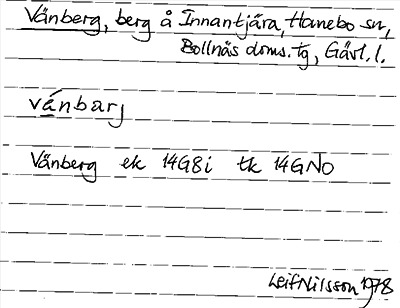 Vänberg, berg å Innantjära, Hanebo sn,
Bollnäs doms. tg, Gävl. l.
vánbarj
Vänberg ek 14G8i tk 14GNO
Leif Nilsson 1978